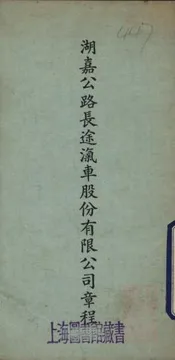 湖嘉公路長途滊車股份有限公司章程
上海圖書館藏書